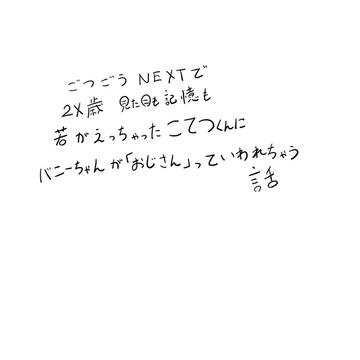 ごつごうNEXTで
2X歳 見た目も記憶も
若がえっちゃったこてつくんに
バニーちゃんが「おじさん」っていわれちゃう
話